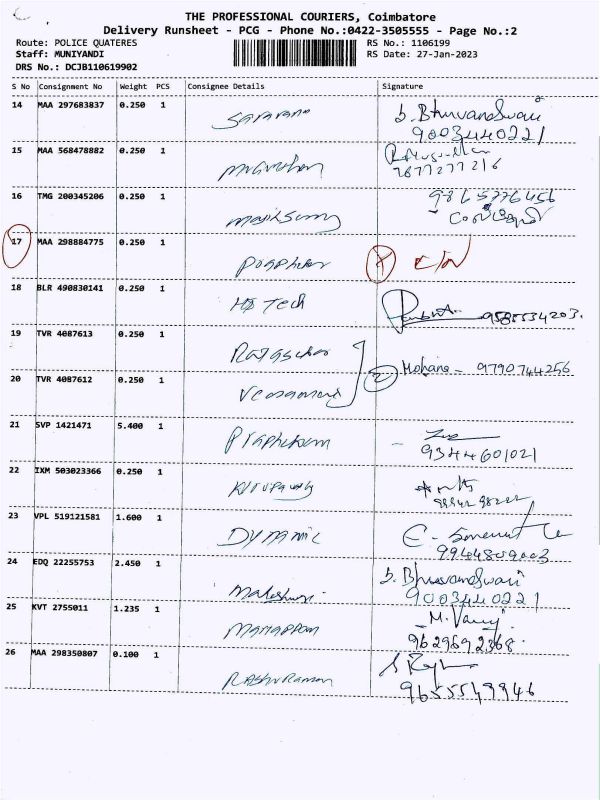 THE PROFESSIONAL COURIERS, Coimbatore
Delivery Runsheet - PCG - Phone No.:0422-3505555 - Page No.:2
Route: POLICE QUATERES RS No.: 1106199
Staff: MUNIYANDI RS Date: 27-Jan-2023
DRS No.: DCJB110619902
S No Consignment No Weight PCS Consignee Details Signature
14 MAA 297683837 0.250 1 Saravana b. Bhuvaneswari
9003440221
15 MAA 568478882 0.250 1
7677277216
16 TMG 200345206 0.250 1 9865776456
17 MAA 298884775 0.250 1
18 BLR 490830141 0.250 1 Hi Tech 9585534203.
19 TVR 4087613 0.250 1 Rajasekar
2 Mohana - 9790744256
20 TVR 4087612 0.250 1
21 SVP 1421471 5.400 1
9344601021
22 IXM 503023366 0.250 1
23 VPL 519121581 1.600 1 DYNAMIC
9944809003
24 EDQ 22255753 2.450 1 Maheshwari b. Bhuvaneswari
9003440221
25 KVT 2755011 1.235 1 M. Vanij
9629692368.
26 MAA 298350807 0.100 1 Raghuraman
9655549946